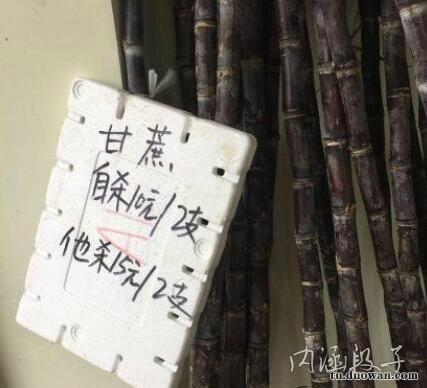 甘蔗
自杀10元/2支
他杀15元/2支
内涵段子
tu.duowan.com